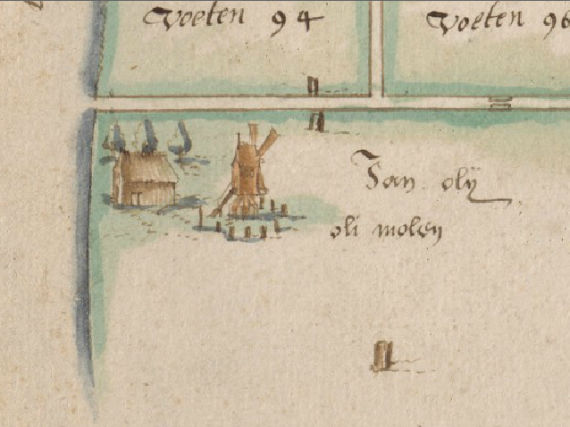 Voeten 94
Voeten 96
Jan olij
oli molen